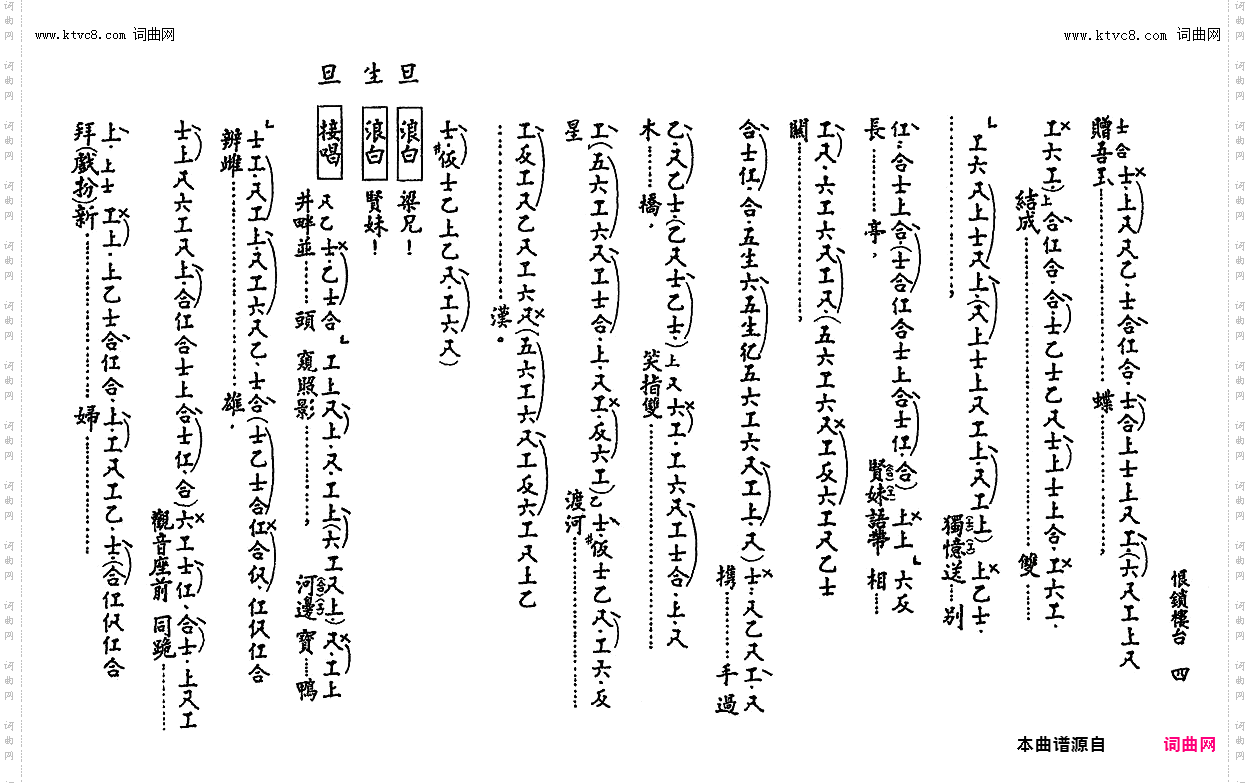 www.ktvc8.com 词曲网
www.ktvc8.com 词曲网
恨鎖樓台 四
士合士上尺尺乙士合仜合士合上士上尺工六尺工上尺
贈吾玉蝶,
工六工上合仜合合士乙士乙尺士上士上合工六工
結成雙
工六尺上士尺上(尺上士上尺工上尺工上)上乙士
獨憶送別
仜合士上合(士合仜合士上合士仜合)上上六反
長亭,賢妹語帶相
工尺六工六尺工尺(五六工六尺工反六工尺乙士
關
合士仜合五生六五生伬五六工六尺工上尺)士尺乙尺工尺
攜手過
乙尺乙士(乙尺士乙士)上尺六工工六尺工士合上尺
木橋,笑指雙
工(五六工六尺工士合上尺工反六工)乙士仮士乙尺工六反
星渡河
工反工尺乙尺工六尺(五六工六尺工反六工尺上乙
漢。
士仮士乙上乙尺工六尺)
旦 浪白 梁兄!
生 浪白 賢妹!
旦 接唱 尺乙士乙士合工上尺上尺工上(六工尺上)尺工上
井畔並頭窺照影,河邊寶鴨
士工尺工上尺工六尺乙士合(士乙士合仜合仩仜仩仜合
辨雌雄.
士上尺六工尺上合仜合士上合士仜合)六工士仜合士上尺工
觀音座前同跪
上上士工上上乙士合仜合上工尺工乙士(合仜仩仜合
拜(戲扮)新婦
本曲谱源自 词曲网